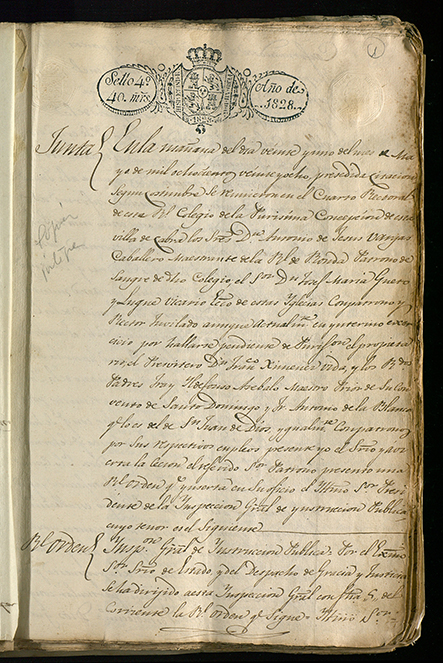 1
Sello 4º
40. mrs.
Año de
1828.
Junta
En la mañana del dia veinte y uno del mes de Ma
yo de mil ochocientos veinte y ocho, precedida citacion
segun costumbre se reunieron en el Cuarto Rectoral
de este Rl Colegio de la Purisima Concepcion de esta
villa de Cabra los Sres Dn Antonio de Jesus Vargas
Caballero Maestrante de la Rl de Ronda Patrono de
Sangre de dho Colegio, el Sor Dn Josef Maria Guero
y Luque Vicario de estas Yglesias Compatrono y
Rector Jubilado aunque actualmte en
cicio por hallarse pendiente de el propieta
rio, el Presvitero Dn Franco Ximenez y los Rdos
Padres Fray Ildefonso Arebalo Maestro Prior de su Con
vento de Santo Domingo y Fr Antonio de la
qe lo es del de Sn Juan de Dios, Compatronos
por sus respectivos empleos presente yo el Srio y avi
erta la cecion el referido Sor Patrono presento una
Rl Orden qe ynserta en su oficio el Yltmo Sor Presi
dente de la Inspeccion Gral de ynstruccion Publica
cuyo tenor es el Siguiente
Rl Orden
Ynspon Gral de Instruccion Publica. Por el Exmo
Sor Srio de Estado y del Despacho de Gracia y Justicia
se ha dirijido a esta Inspeccion Gral con fha 5 del
Corriente la Rl Orden qe Sigue. Yltmo Sor